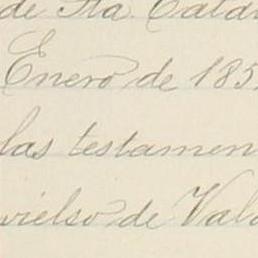 de Sta Catal
Enero de 185
las testamen
vielso de Val